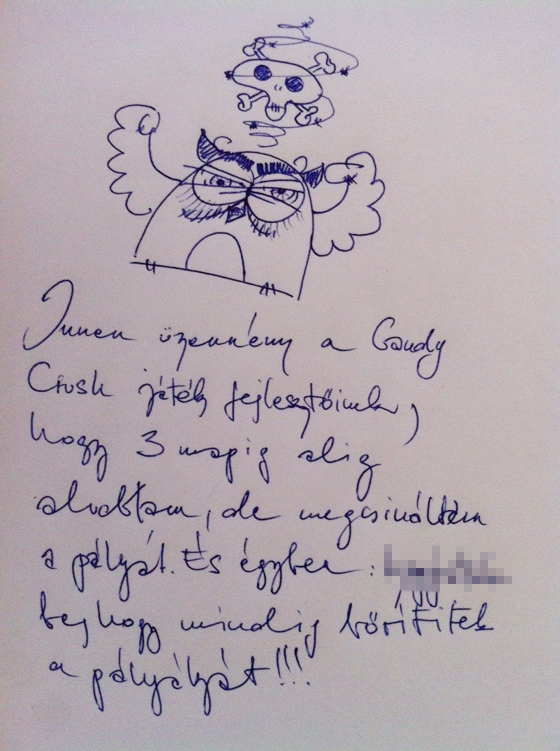 Innen üzenném a Candy
Crush játék fejlesztőinek,
hogy 3 napig alig
aludtam, de megcsináltam
a pályát. És egyben:
hogy mindig bővítitek
a pályáját!!!